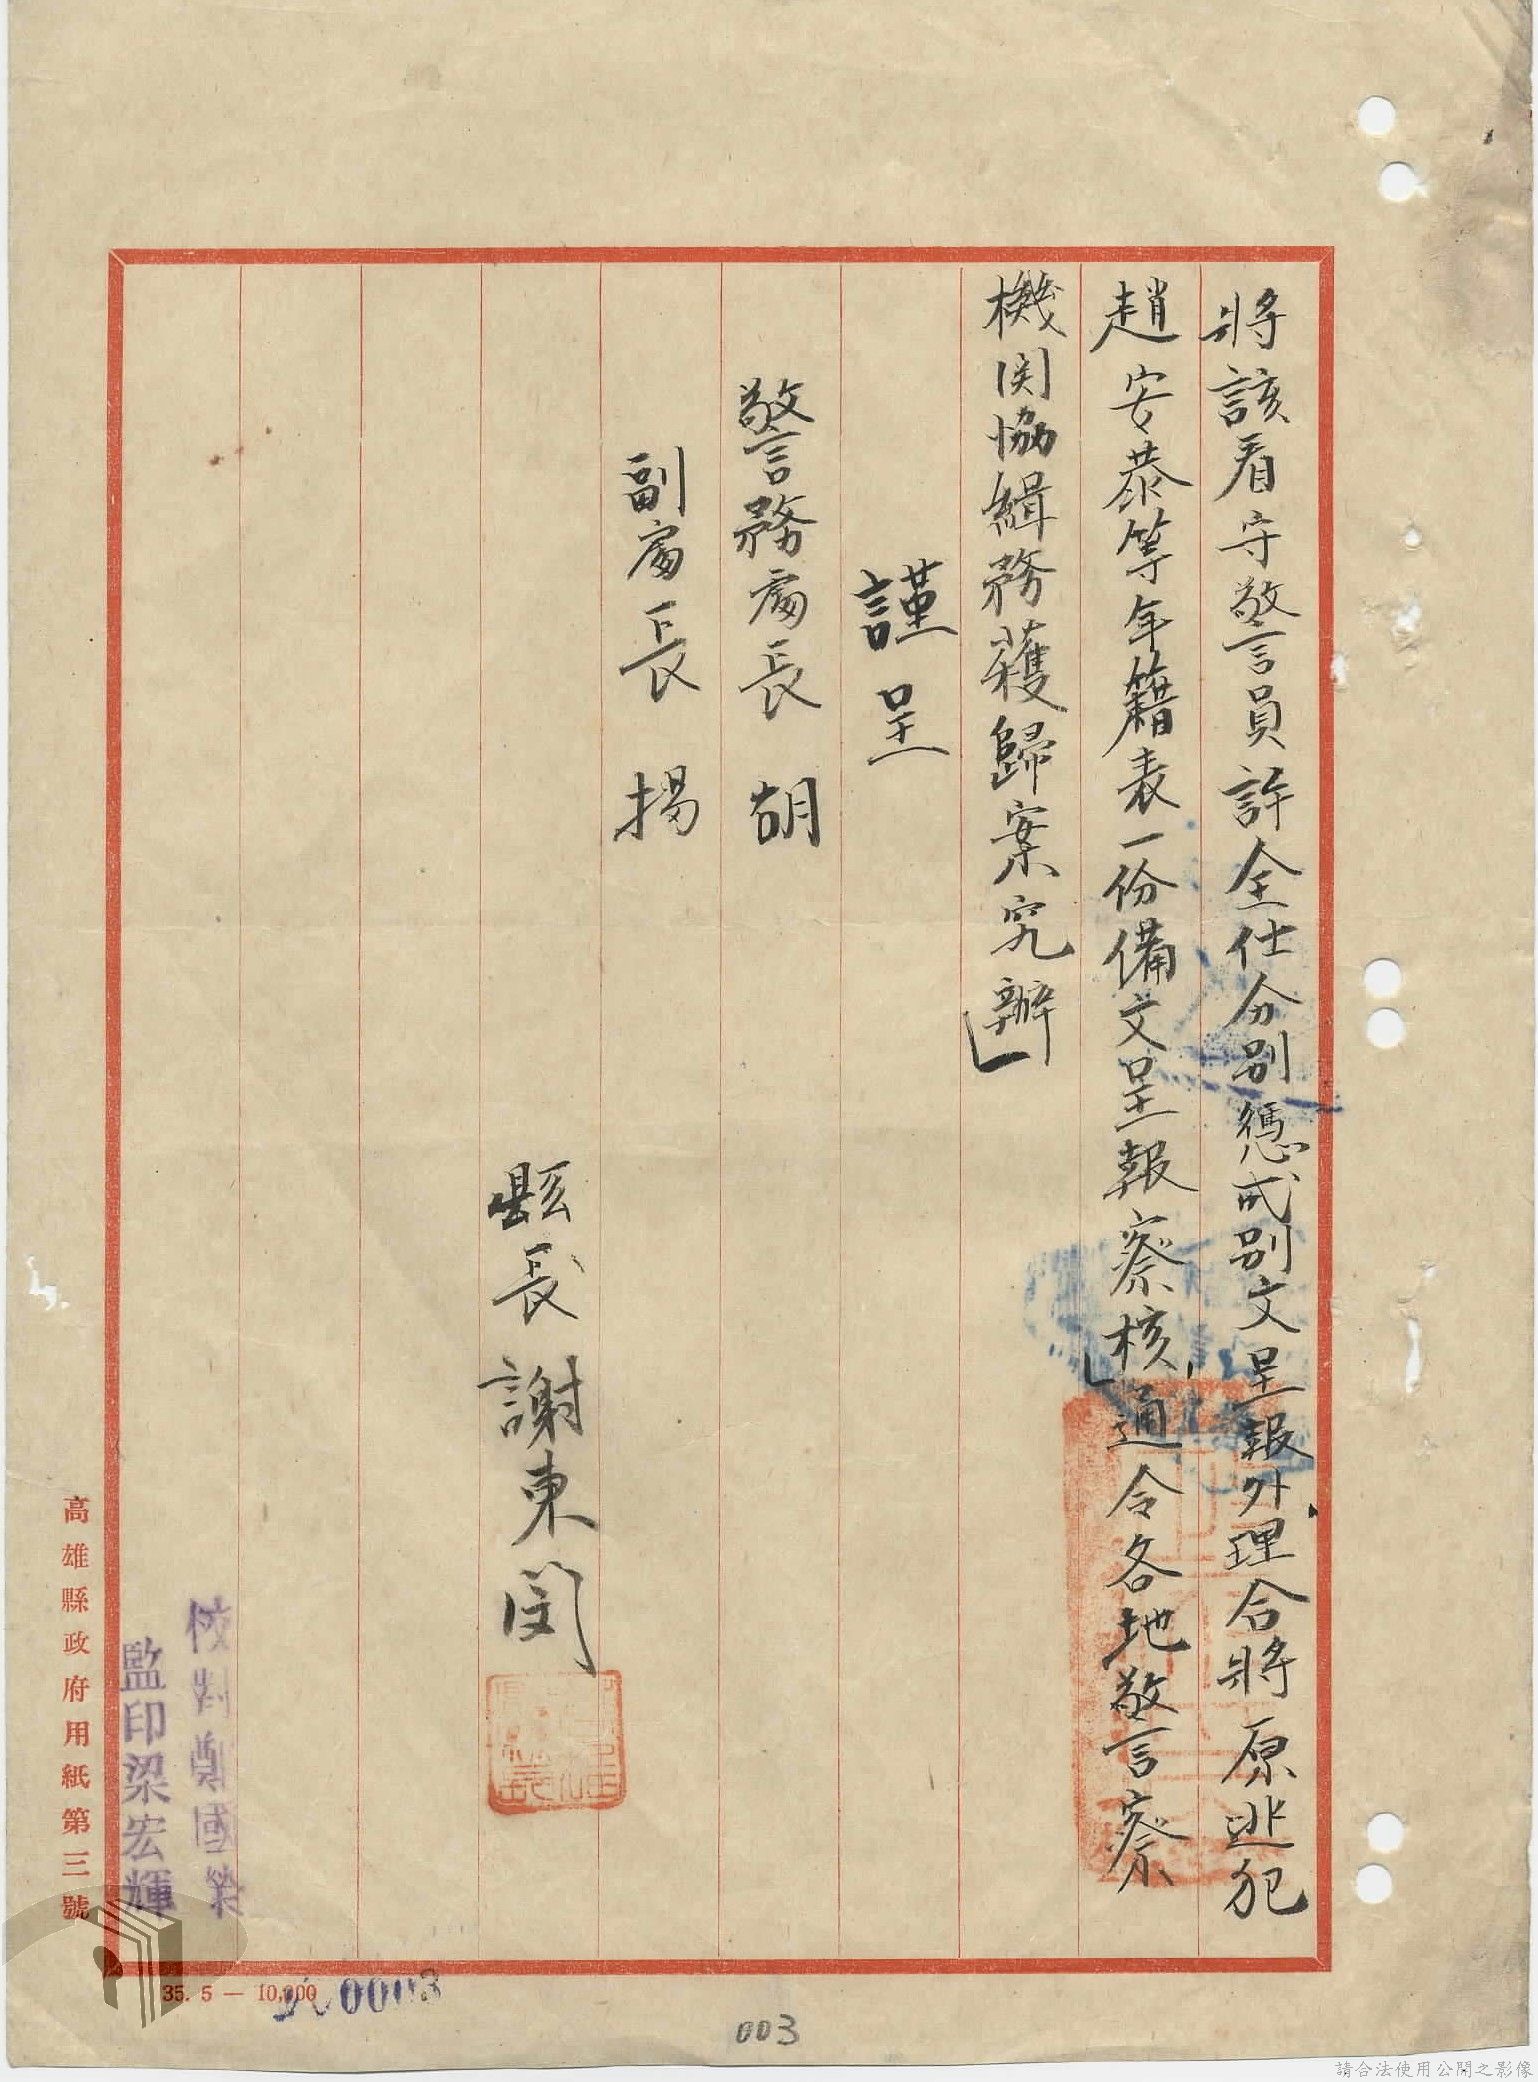 將該看守警員許全仕分別懲戒別文呈報外理合將原逃犯
趙安恭等年籍表一份備文呈報察核「通令各地警察
機関協緝務獲歸案究辦」
謹呈
警務處長 胡
副處長 楊
縣長 謝東閔
校對鄭國榮
監印梁宏輝
高雄縣政府用紙第三號
35. 5 — 10,000
0003
003
請合法使用公開之影像